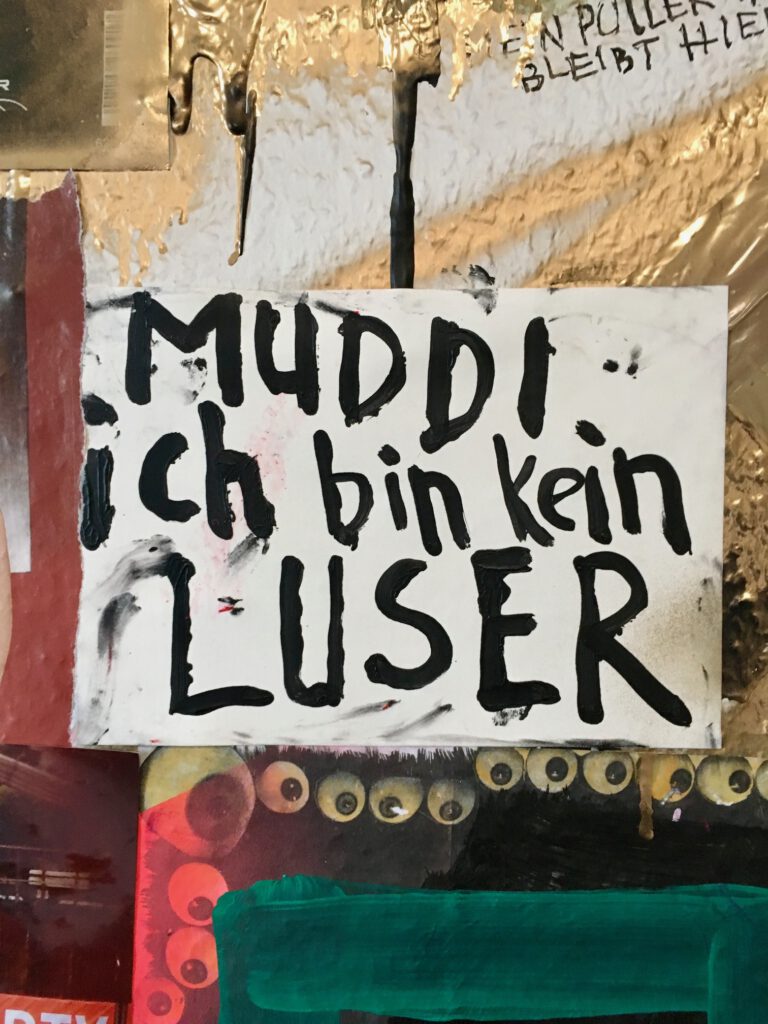 EIN PULLER
BLEIBT HIER
MUDDI
ich bin kein
LUSER